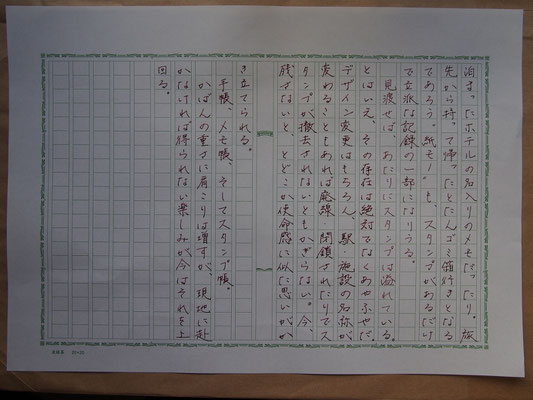 泊まったホテルの名入りのメモだったり。旅
先から持って帰ったとたんゴミ箱行きとなる
であろう〝紙モノ〟も、スタンプがあるだけ
で立派な記録の一部になりうる。
　見渡せば、あたりにスタンプは溢れている。
とはいえ、その存在は絶対でなくあやふやだ。
デザイン変更はもちろん、駅、施設の名称が
変わることもあれば廃線、閉鎖されたりでス
タンプが撤去されないともかぎらない。今、
残さないと、とどこか使命感に似た思いがか
き立てられる。
　手帳、メモ帳、そしてスタンプ帳。
　かばんの重さに肩こりは増すが、現地に赴
かなければ得られない楽しみが今はそれを上
回る。
20×20